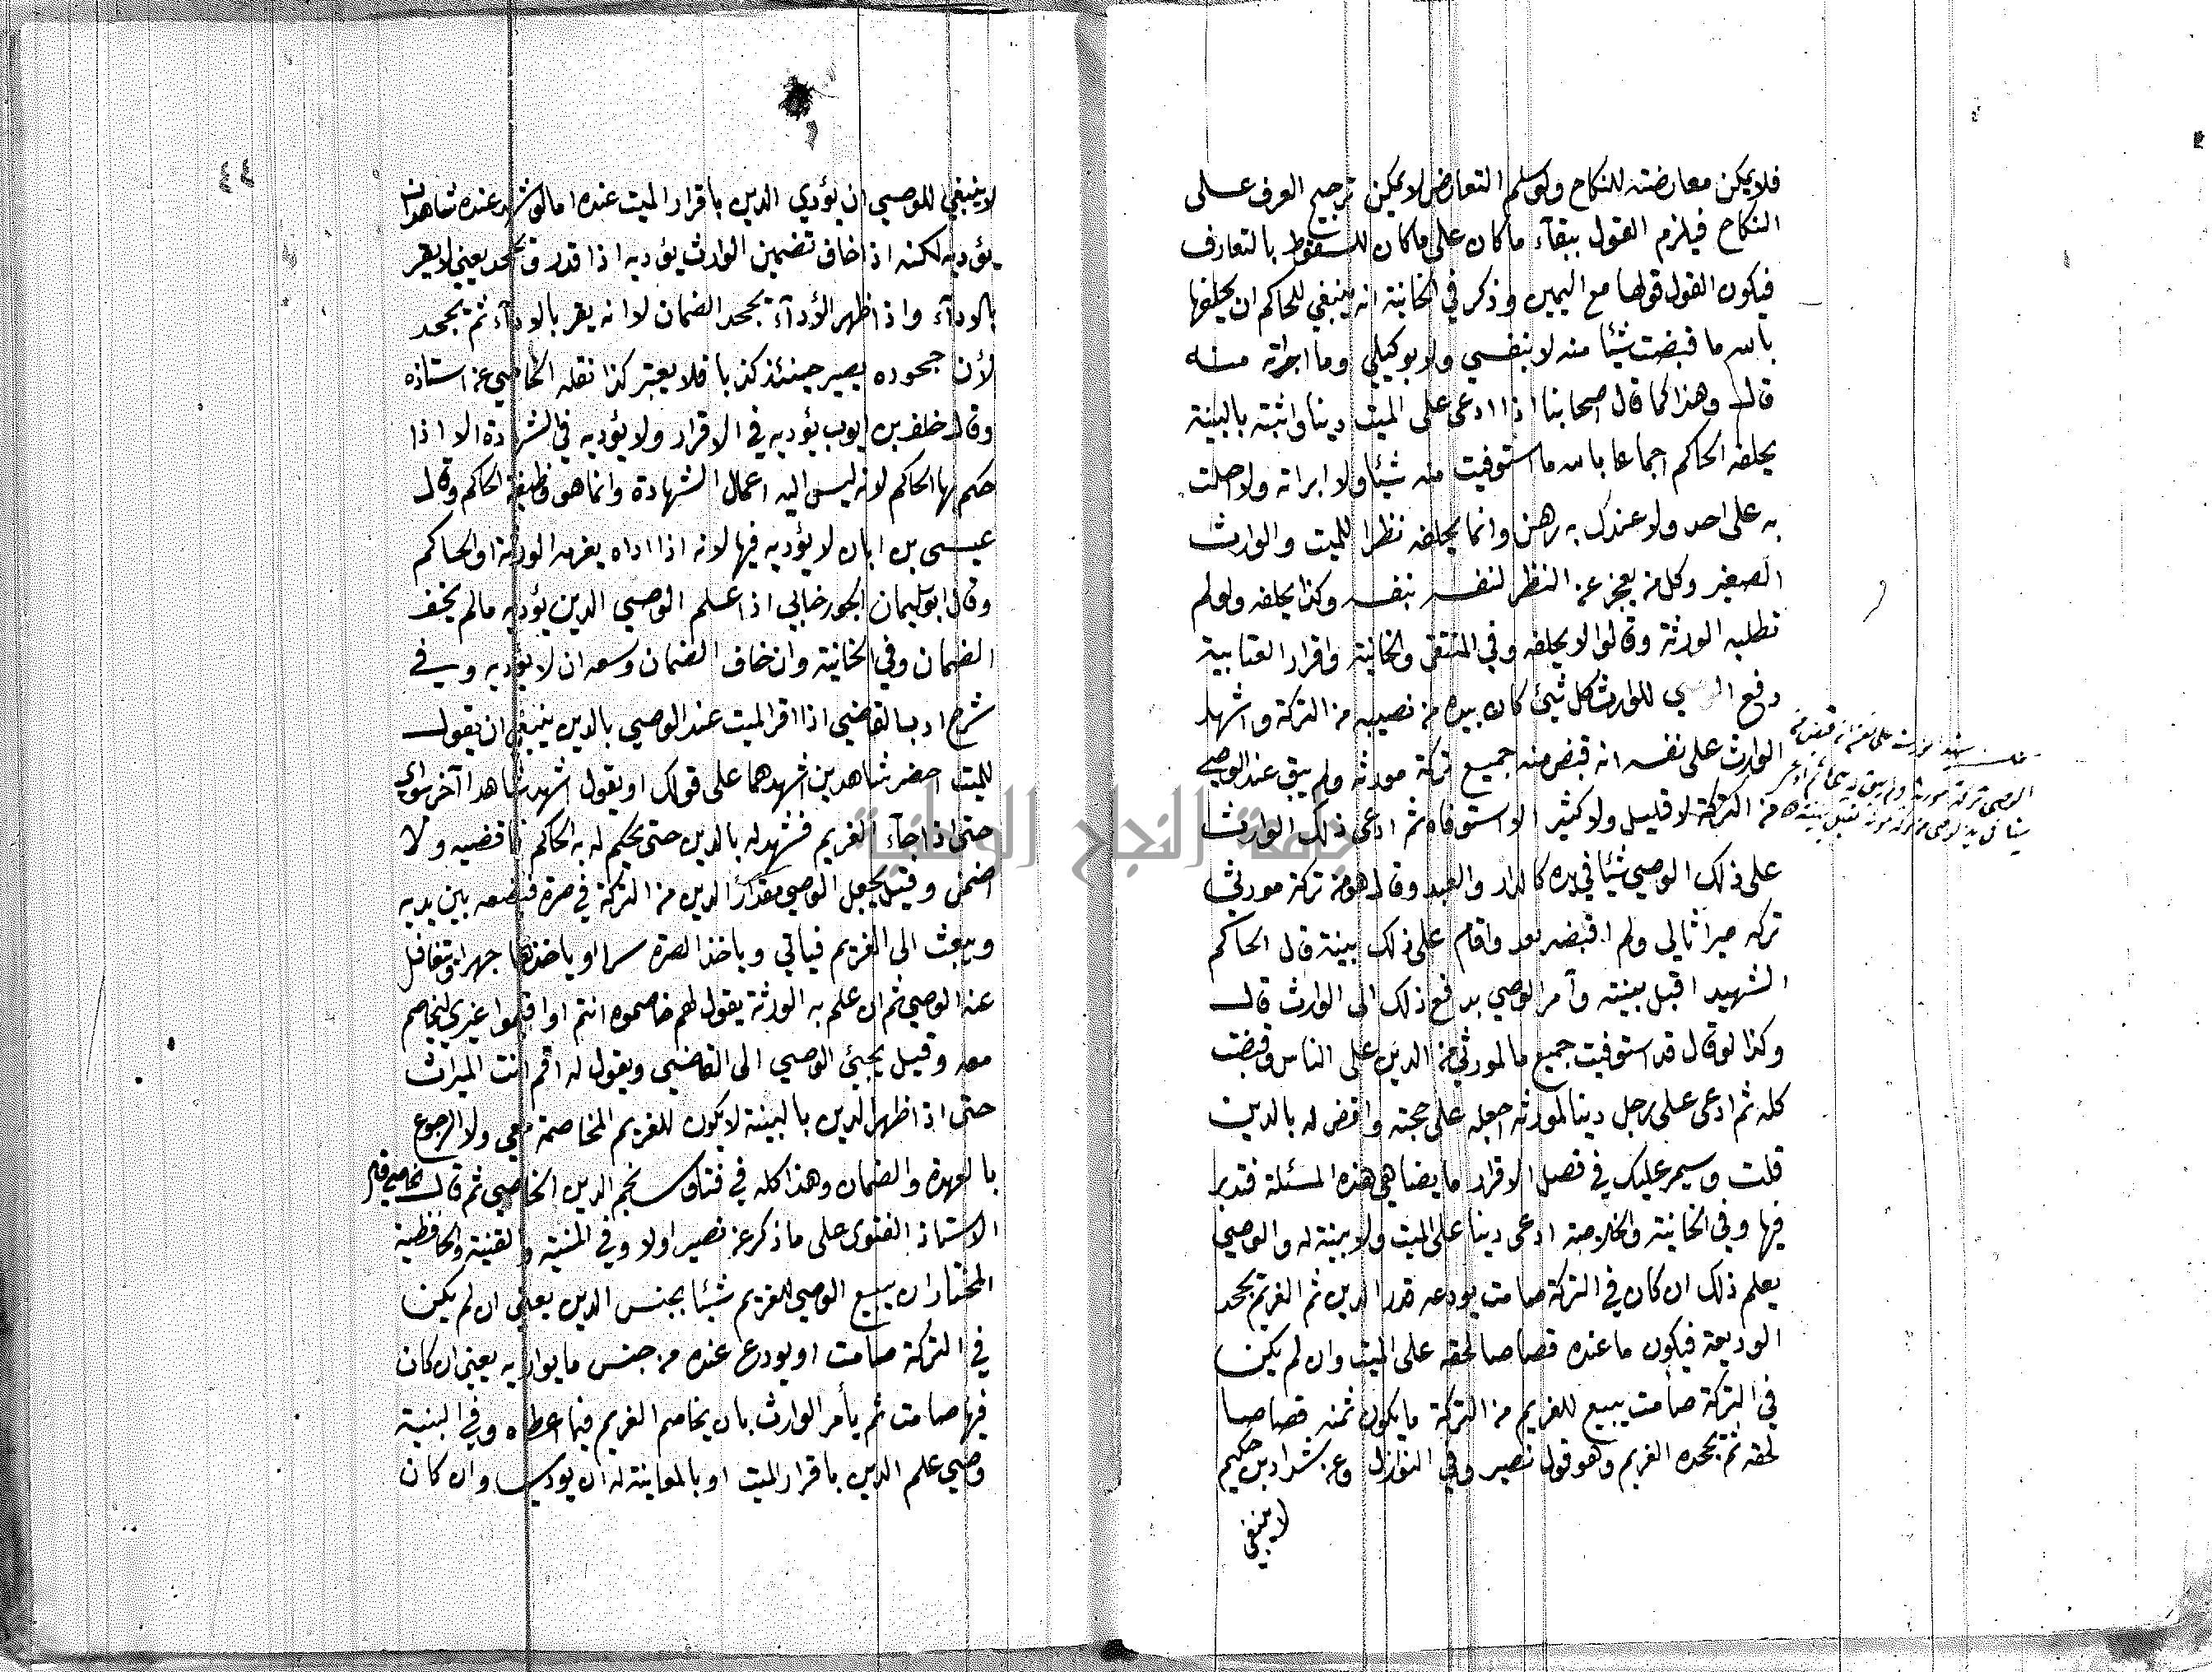 فلا يمكن معارضته للنكاح ولو سلم التعارض لا يمكن ترجيح العرف على
النكاح فيلزم القول ببقآء ما كان على ما كان للسقوط بالتعارف
فيكون القول قولها مع اليمين وذكر في الخانية انه ينبغي للحاكم ان يحلفها
بالله ما قبضت شيئا منه لا بنفسي ولا بوكيلي وما ابراته منه
قال وهذا كما قال اصحابنا اذا ادعى على الميت دينا واثبته بالبينة
يحلفه الحاكم اجماعا بالله ما استوفيت منه شيئا ولا ابراته ولا احلت
به على احد ولا عندك به رهن وانما يحلفه نظرا للميت والوارث
الصغير وكل من يعجز عن النظر لنفسه بنفسه وكذا يحلفه ولو لم
تطلبه الورثة وقالوا لا يحلفه وفي المنتقى والخانية واقرار العتابية
دفع الوصي للوارث كل شيئ كان بيده من نصيبه من التركة واشهد
الوارث على نفسه انه قبض منه جميع تركة مورثه ولم يبق عند الوصي
من التركة لا قليل ولا كثير الا استوفاه ثم ادعى ذلك الوارث
على ذلك الوصي شيئا في يده كالدار والعبد وقال هو من تركة مورثي
تركه ميراثا لي ولم اقبضه بعد واقام على ذلك بينة قال الحاكم
الشهيد اقبل بينته وآمر الوصي بدفع ذلك الى الوارث قال
وكذا لو قال قد استوفيت جميع ما لمورثي من الدين على الناس وقبضت
كله ثم ادعى على رجل دينا لمورثه اجعله على حجته واقض له بالدين
قلت وسيمر عليك في فصل الاقرار ما يضاهي هذه المسئلة فتدبر
فيها وفي الخانية والخلاصة ادعى دينا على الميت ولا بينة له والوصي
يعلم ذلك ان كان في التركة صامت يودعه قدر الدين ثم الغريم يجحد
الوديعة فيكون ما عنده قصاصا لحقه على الميت وان لم يكن
في التركة صامت يبيع للغريم من التركة ما يكون ثمنه قصاصا
لحقه ثم يجحده الغريم وهو قول نصير وفي النوازل وعن شداد بن حكيم
لا ينبغي
٤٤
لا ينبغي للوصي ان يؤدي الدين باقرار الميت عنده اما لو شهد عنده شاهدان
يؤديه لكنه اذا خاف تضمين الوارث يؤديه اذا قدر ويجحد يعني لا يقر
بالادآء واذا ظهر الأدآء يجحد الضمان لا انه يقر بالادآء ثم يجحد
لأن جحوده يصير حينئذ كذبا فلا يعتبر كذا نقله الخاصي عن استاذه
وقال خلف بن ايوب يؤديه في الاقرار ولا يؤديه في الشهادة الا اذا
حكم بها الحاكم لانه ليس اليه اعمال الشهادة وانما هو وظيفة الحاكم وقال
عيسى بن ابان لا يؤديه فيها لانه اذا اداه يغرمه الورثة او الحاكم
وقال ابو سليمان الجورجاني اذا علم الوصي الدين يؤديه ما لم يخف
الضمان وفي الخانية وان خاف الضمان وسعه ان لا يؤديه وفي
شرح ادب القاضي اذا اقر الميت عند الوصي بالدين ينبغي ان يقول
للميت احضر شاهدين اشهدهما على قولك او يقول اشهد شاهدا آخر سواي
حتى اذا جآء الغريم فشهد له بالدين حتى يحكم له به الحاكم فاقضيه ولا
اضمن وقيل يجعل الوصي مقدار الدين من التركة في صرة فيضعه بين يديه
ويبعث الى الغريم فيأتي وياخذ الصرة سرا او ياخذها جهرا ويتغافل
عنه الوصي ثم ان علم به الورثة يقول لهم خاصموه انتم او اقيموا غيري ليخاصم
معه وقيل يجيئ الوصي الى القاضي ويقول له اقم انت الميراث
حتى اذا ظهر الدين بالبينة لا يكون للغريم المخاصمة معي ولا الرجوع
بالعهدة والضمان وهذا كله في فتاوى نجم الدين الخاصي ثم قال الخاصي قال
الاستاذ الفتوى على ما ذكر عن نصير اولا وفي المنية والقنية والحافظية
المختار ان يبيع الوصي للغريم شيئا بجنس الدين يعني ان لم يكن
في التركة صامت او يودع عنده من جنس ما يواريه يعني ان كان
فيها صامت ثم يأمر الوارث بان يخاصم الغريم فيما اعطاه وفي البنية
وصي علم الدين باقرار الميت او بالمعاينة له ان يودي وان كان
جامعة النجاح الوطنية